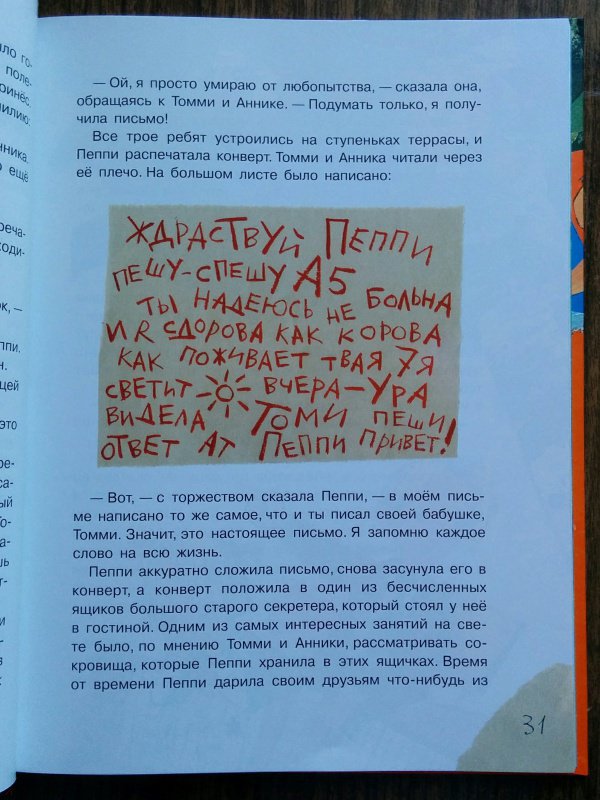 — Ой, я просто умираю от любопытства, — сказала она,
обращаясь к Томми и Аннике. — Подумать только, я полу-
чила письмо!
Все трое ребят устроились на ступеньках террасы, и
Пеппи распечатала конверт. Томми и Анника читали через
её плечо. На большом листе было написано:
ЖДРАСТВУЙ ПЕППИ
ПЕШУ-СПЕШУ А5
ТЫ НАДЕЮСЬ НЕ БОЛЬНА
И R СДОРОВА КАК КОРОВА
КАК ПОЖИВАЕТ ТВАЯ 7Я
СВЕТИТ ВЧЕРА—УРА
ВИДЕЛА ТОМИ ПЕШИ
ОТВЕТ АТ ПЕППИ ПРИВЕТ!
— Вот, — с торжеством сказала Пеппи, — в моём пись-
ме написано то же самое, что и ты писал своей бабушке,
Томми. Значит, это настоящее письмо. Я запомню каждое
слово на всю жизнь.
Пеппи аккуратно сложила письмо, снова засунула его в
конверт, а конверт положила в один из бесчисленных
ящиков большого старого секретера, который стоял у неё
в гостиной. Одним из самых интересных занятий на све-
те было, по мнению Томми и Анники, рассматривать со-
кровища, которые Пеппи хранила в этих ящичках. Время
от времени Пеппи дарила своим друзьям что-нибудь из
31